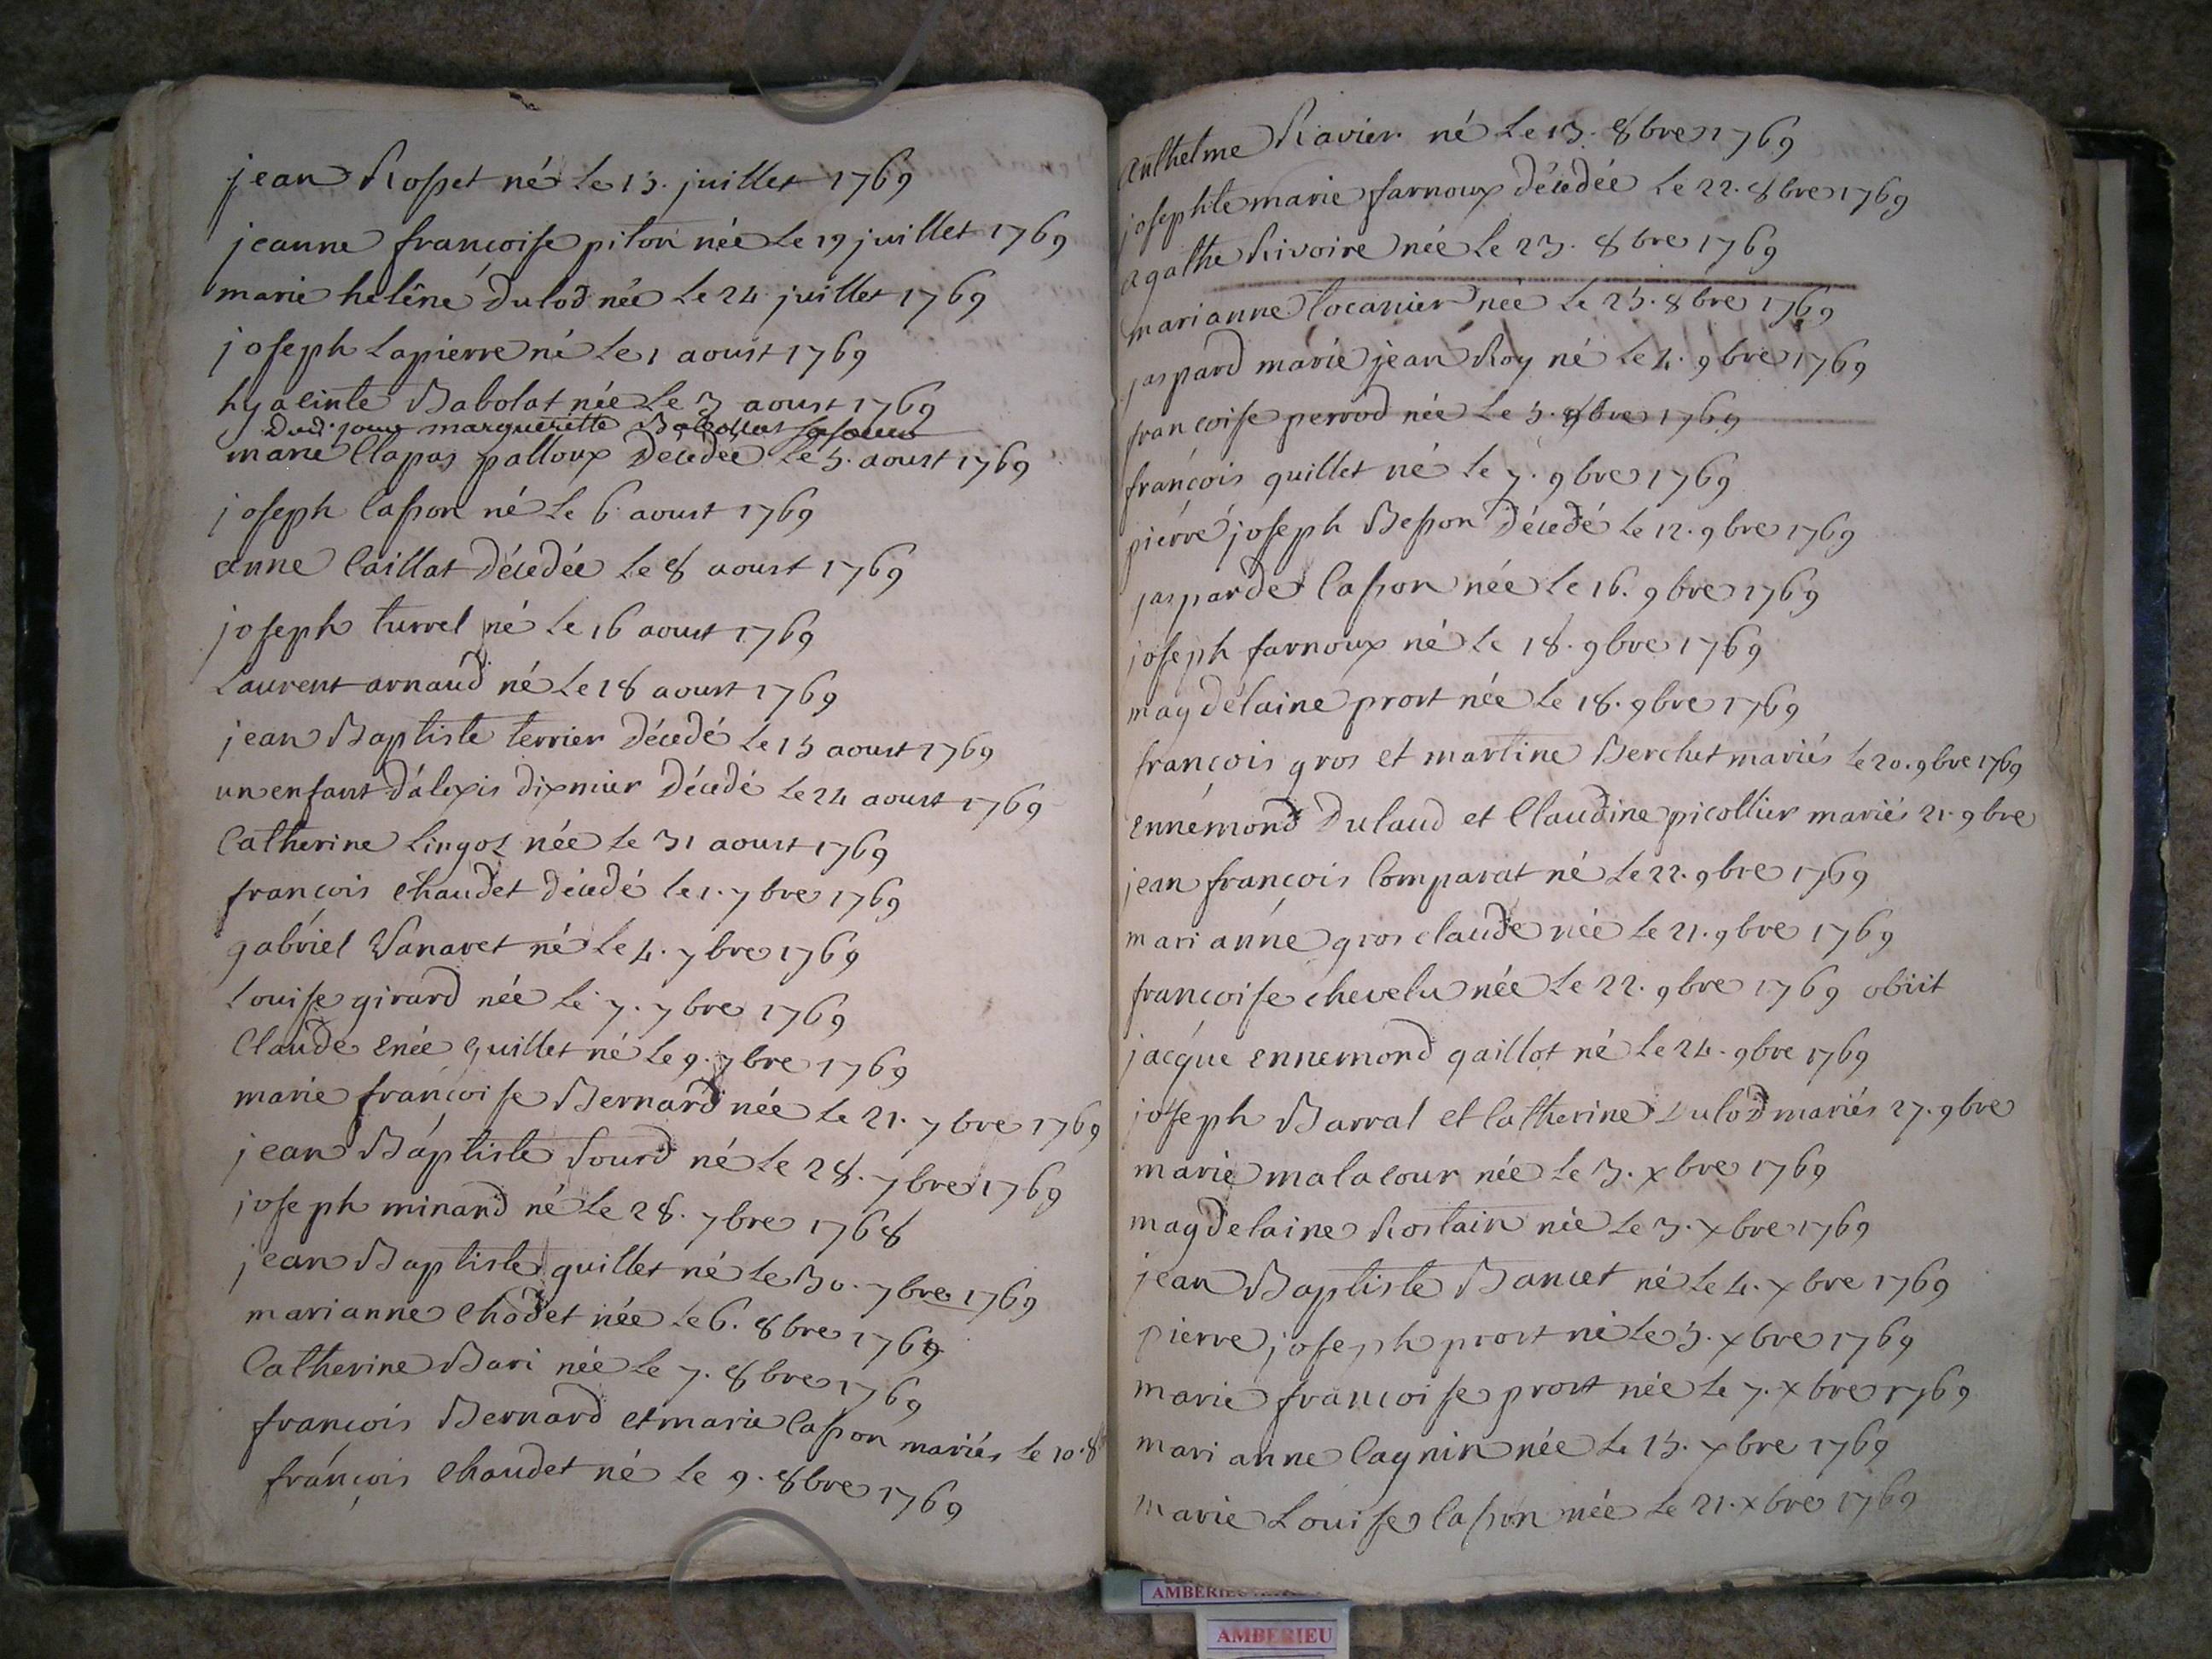 jean Rosset né le 15. juillet 1769
jeanne françoise piton née le 19 juillet 1769
marie helêne dulod née le 24 juillet 1769
joseph lapierre né le 1 aoust 1769
hyacinte Babolat née le 3 aoust 1769
Dud. jour margueritte Babollat sa soeur
marie Clapas palloux décédée le 5. aoust 1769
joseph Casson né le 6 aoust 1769
anne Caillat décédée le 8 aoust 1769
joseph turrel né le 16 aoust 1769
Laurent arnaud né le 18 aoust 1769
jean Baptiste terrier décédé le 15 aoust 1769
un enfant d'alexis dixmier décédé le 24 aoust 1769
Catherine Lingot née le 31 aoust 1769
françois Chaudet décédé le 1. 7bre 1769
gabriel Vanaret né le 4. 7bre 1769
Louise girard née le 7. 7bre 1769
Claude enée guillet né le 9. 7bre 1769
marie françoise Bernard née le 21. 7bre 1769
jean Baptiste Sourd né le 28. 7bre 1769
joseph minand né le 28. 7bre 1768
jean Baptiste guillet né le 30. 7bre 1769
marianne Chodet née le 6. 8bre 1769
Catherine Bari née le 7. 8bre 1769
françois Bernard et marie Casson mariés le 10. 8
françois Chaudet né le 9. 8bre 1769
anthelme Ravier né le 13. 8bre 1769
josephte marie farnoux décédée le 22. 8bre 1769
agathe Rivoire née le 23. 8bre 1769
marianne Cocanier née le 25. 8bre 1769
jaspard marie jean Roy né le 4. 9bre 1769
françoise perrod née le 5. 9bre 1769
françois guillet né le 7. 9bre 1769
pierre joseph Besson décédé le 12. 9bre 1769
jasparde Casson née le 16. 9bre 1769
joseph farnoux né le 18. 9bre 1769
magdelaine prost née le 18. 9bre 1769
françois gros et martine Berchet mariés le 20. 9bre 1769
ennemond dulaud et Claudine picollier mariés 21. 9bre
jean françois Comparat né le 22. 9bre 1769
marianne gros claude née le 21. 9bre 1769
françoise chevelu née le 22. 9bre 1769 obiit
jacque ennemond gaillot né le 24. 9bre 1769
joseph Barral et Catherine dulod mariés 27. 9bre
marie malacour née le 3. xbre 1769
magdelaine Rostain née le 3. xbre 1769
jean Baptiste Bancet né le 4. xbre 1769
pierre joseph prost né le 5. xbre 1769
marie françoise prost née le 7. xbre 1769
marianne Cagnin née le 15. xbre 1769
marie Louise Casson née le 21. xbre 1769
AMBERIEU
AMBERIEU